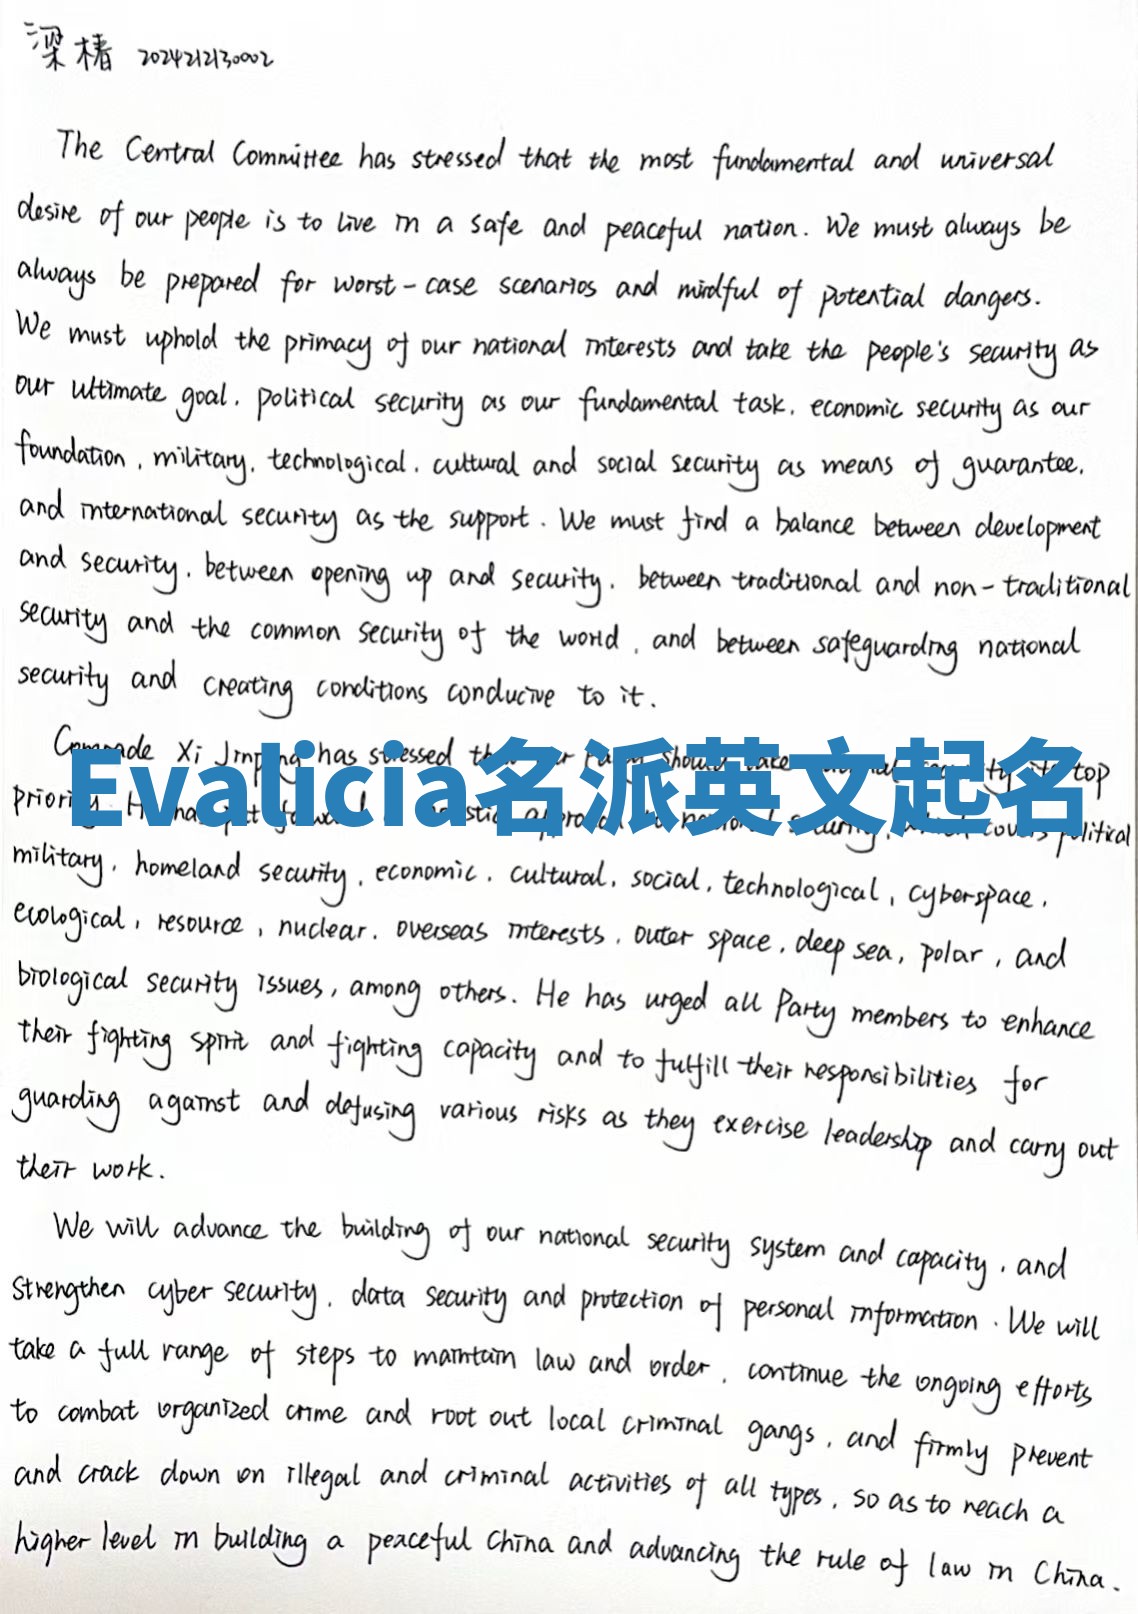 梁椿 2024212130002
The Central Committee has stressed that the most fundamental and universal
desire of our people is to live in a safe and peaceful nation. We must always be
always be prepared for worst-case scenarios and mindful of potential dangers.
We must uphold the primacy of our national interests and take the people's security as
our ultimate goal, political security as our fundamental task, economic security as our
foundation, military, technological, cultural and social security as means of guarantee,
and international security as the support. We must find a balance between development
and security, between opening up and security, between traditional and non-traditional
security and the common security of the world, and between safeguarding national
security and creating conditions conducive to it.
Comrade Xi Jinping has stressed should take top
Evalicia名派英文起名
priority. He has put approach national security, which covers political
military, homeland security, economic, cultural, social, technological, cyberspace,
ecological, resource, nuclear, overseas interests, outer space, deep sea, polar, and
biological security issues, among others. He has urged all Party members to enhance
their fighting spirit and fighting capacity and to fulfill their responsibilities for
guarding against and defusing various risks as they exercise leadership and carry out
their work.
We will advance the building of our national security system and capacity, and
strengthen cyber security, data security and protection of personal information. We will
take a full range of steps to maintain law and order, continue the ongoing efforts
to combat organized crime and root out local criminal gangs, and firmly prevent
and crack down on illegal and criminal activities of all types, so as to reach a
higher level in building a peaceful China and advancing the rule of law in China.